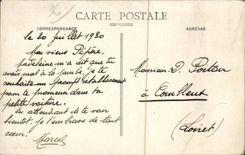 CARTE POSTALE
CORRESPONDANCE
ADRESSE
le 20 juillet 1920
Mon vieux Pépère,
Madeleine m'a dit que tu
avais mal à la jambe, je te
souhaite un prompt rétablissement
pour te promener dans ta
petite voiture.
En attendant de te voir
bientôt, je t'embrasse de tout
cœur.
Marcel
Monsieur D.
à Combleux
(Loiret)